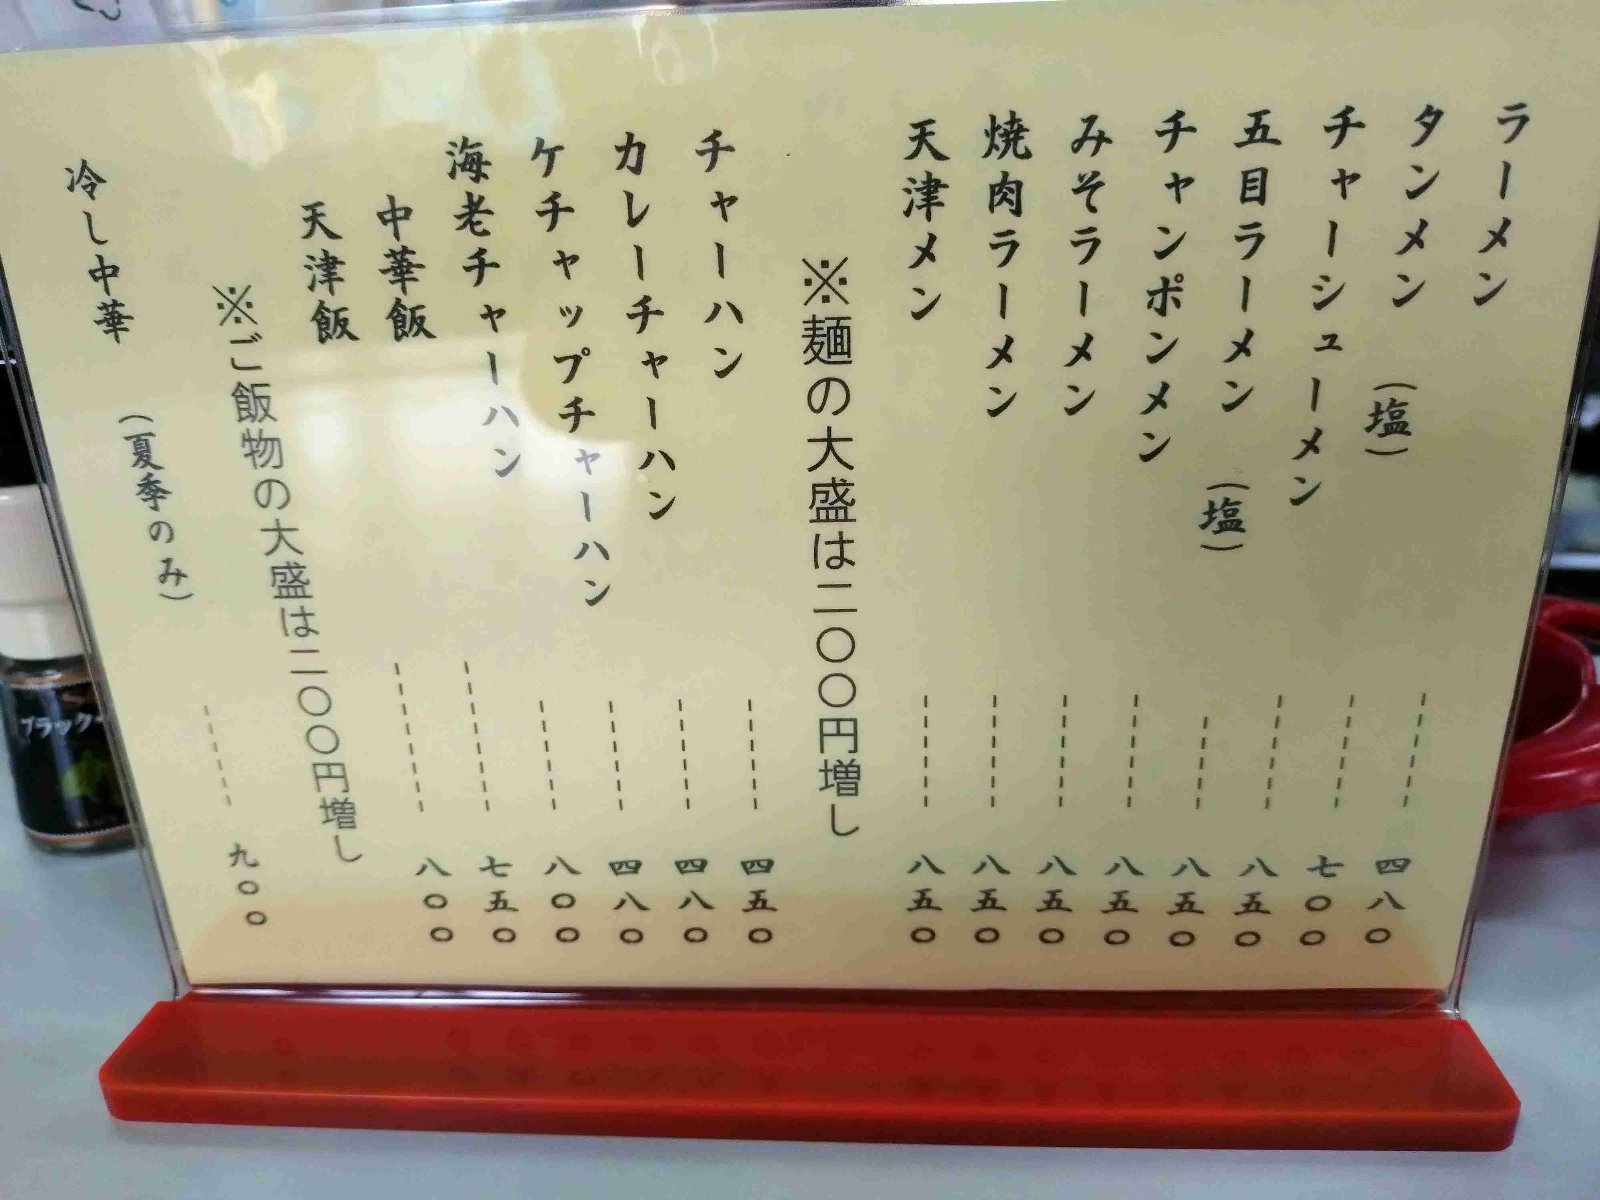 ラーメン 四八〇
タンメン (塩) 七〇〇
チャーシューメン 八五〇
五目ラーメン (塩) 八五〇
チャンポンメン 八五〇
みそラーメン 八五〇
焼肉ラーメン 八五〇
天津メン 八五〇
※麺の大盛は二〇〇円増し
チャーハン 四五〇
カレーチャーハン 四八〇
ケチャップチャーハン 四八〇
海老チャーハン 八〇〇
中華飯 七五〇
天津飯 八〇〇
※ご飯物の大盛は二〇〇円増し
冷し中華 (夏季のみ) 九〇〇
ブラック